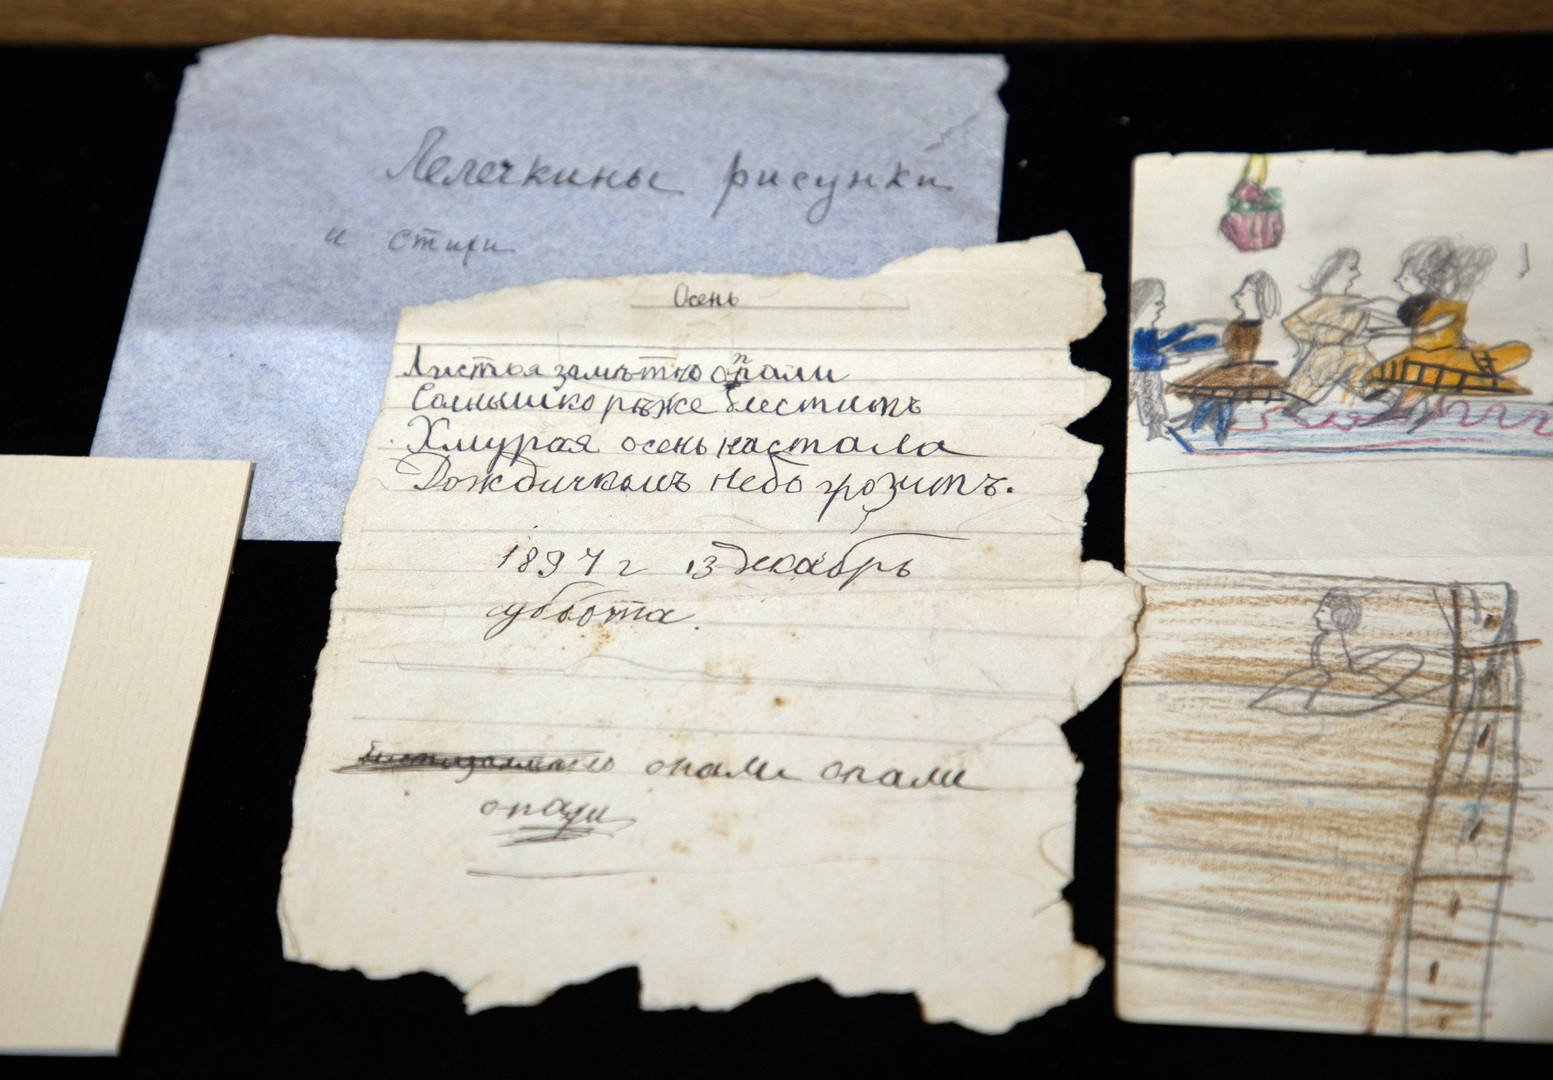 Лелечкины рисунки
и стихи
Осень
Листья замѣтно опали
Солнышко рѣже блеститъ
Хмурая осень настала
Дождичкомъ небо грозитъ.
1897 г 13 декабрь
суббота.
опали опали
опали